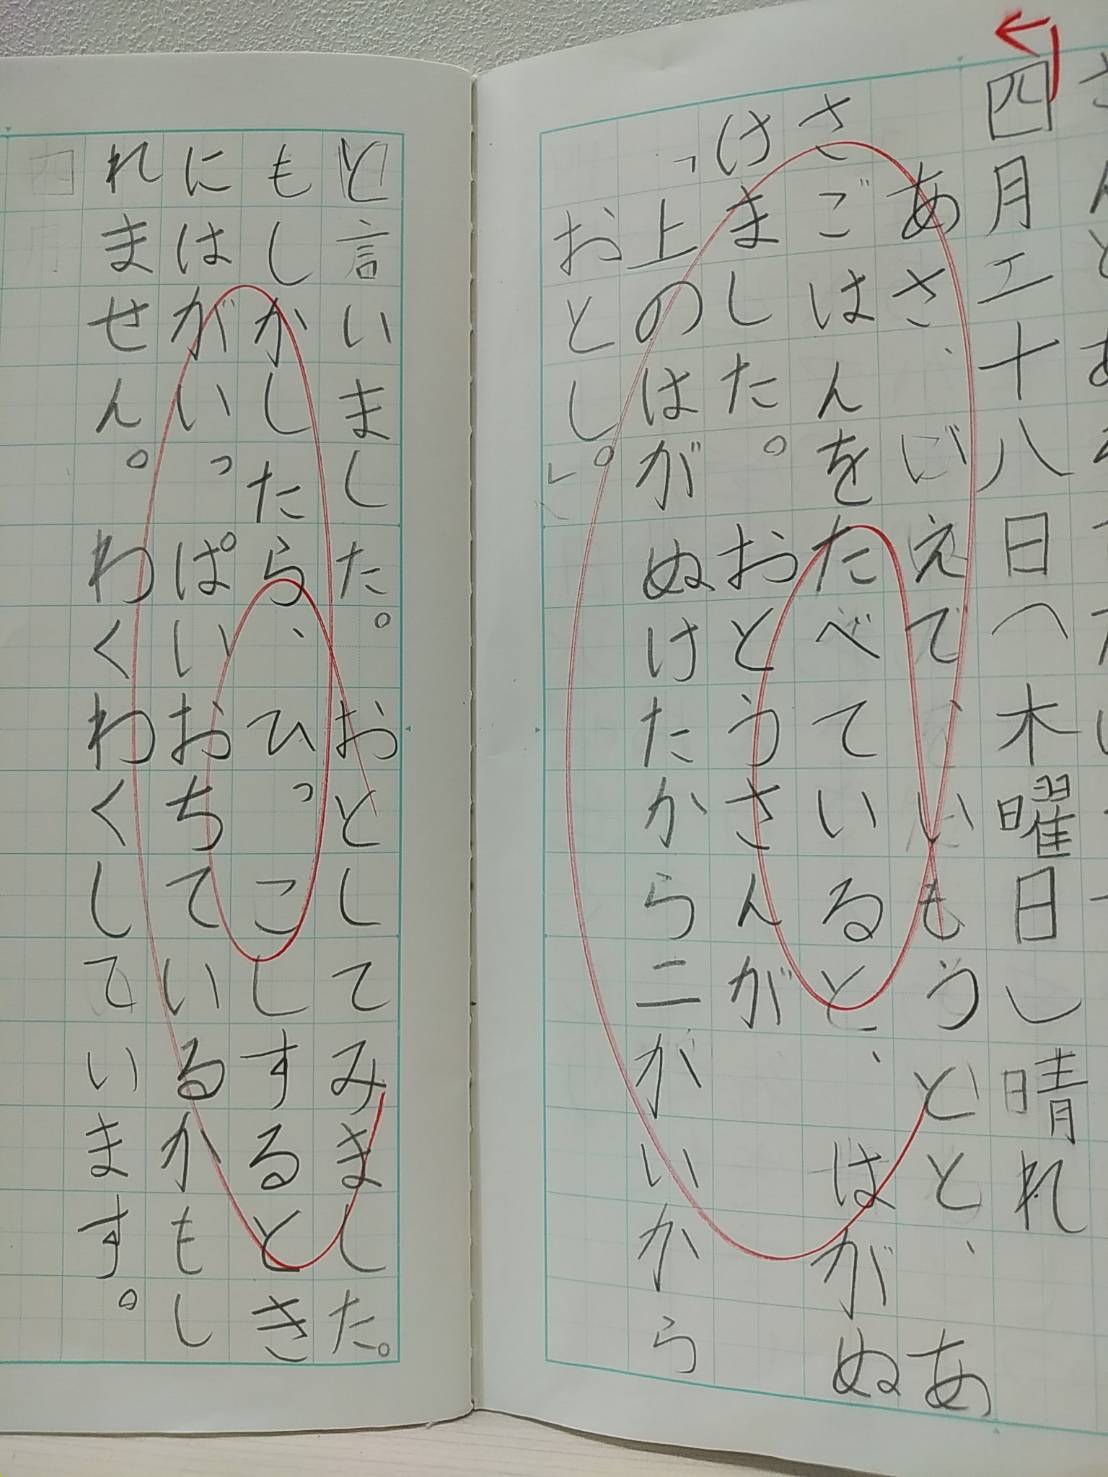 四月二十八日(木曜日)晴れ
あさ、にえでいもうとと、あ
さごはんをたべていると、はがぬ
けました。おとうさんが
「上のはがぬけたから二がいから
おとし。」
と言いました。おとしてみました。
もしかしたら、ひっこしするとき
にはがいっぱいおちているかもし
れません。わくわくしています。